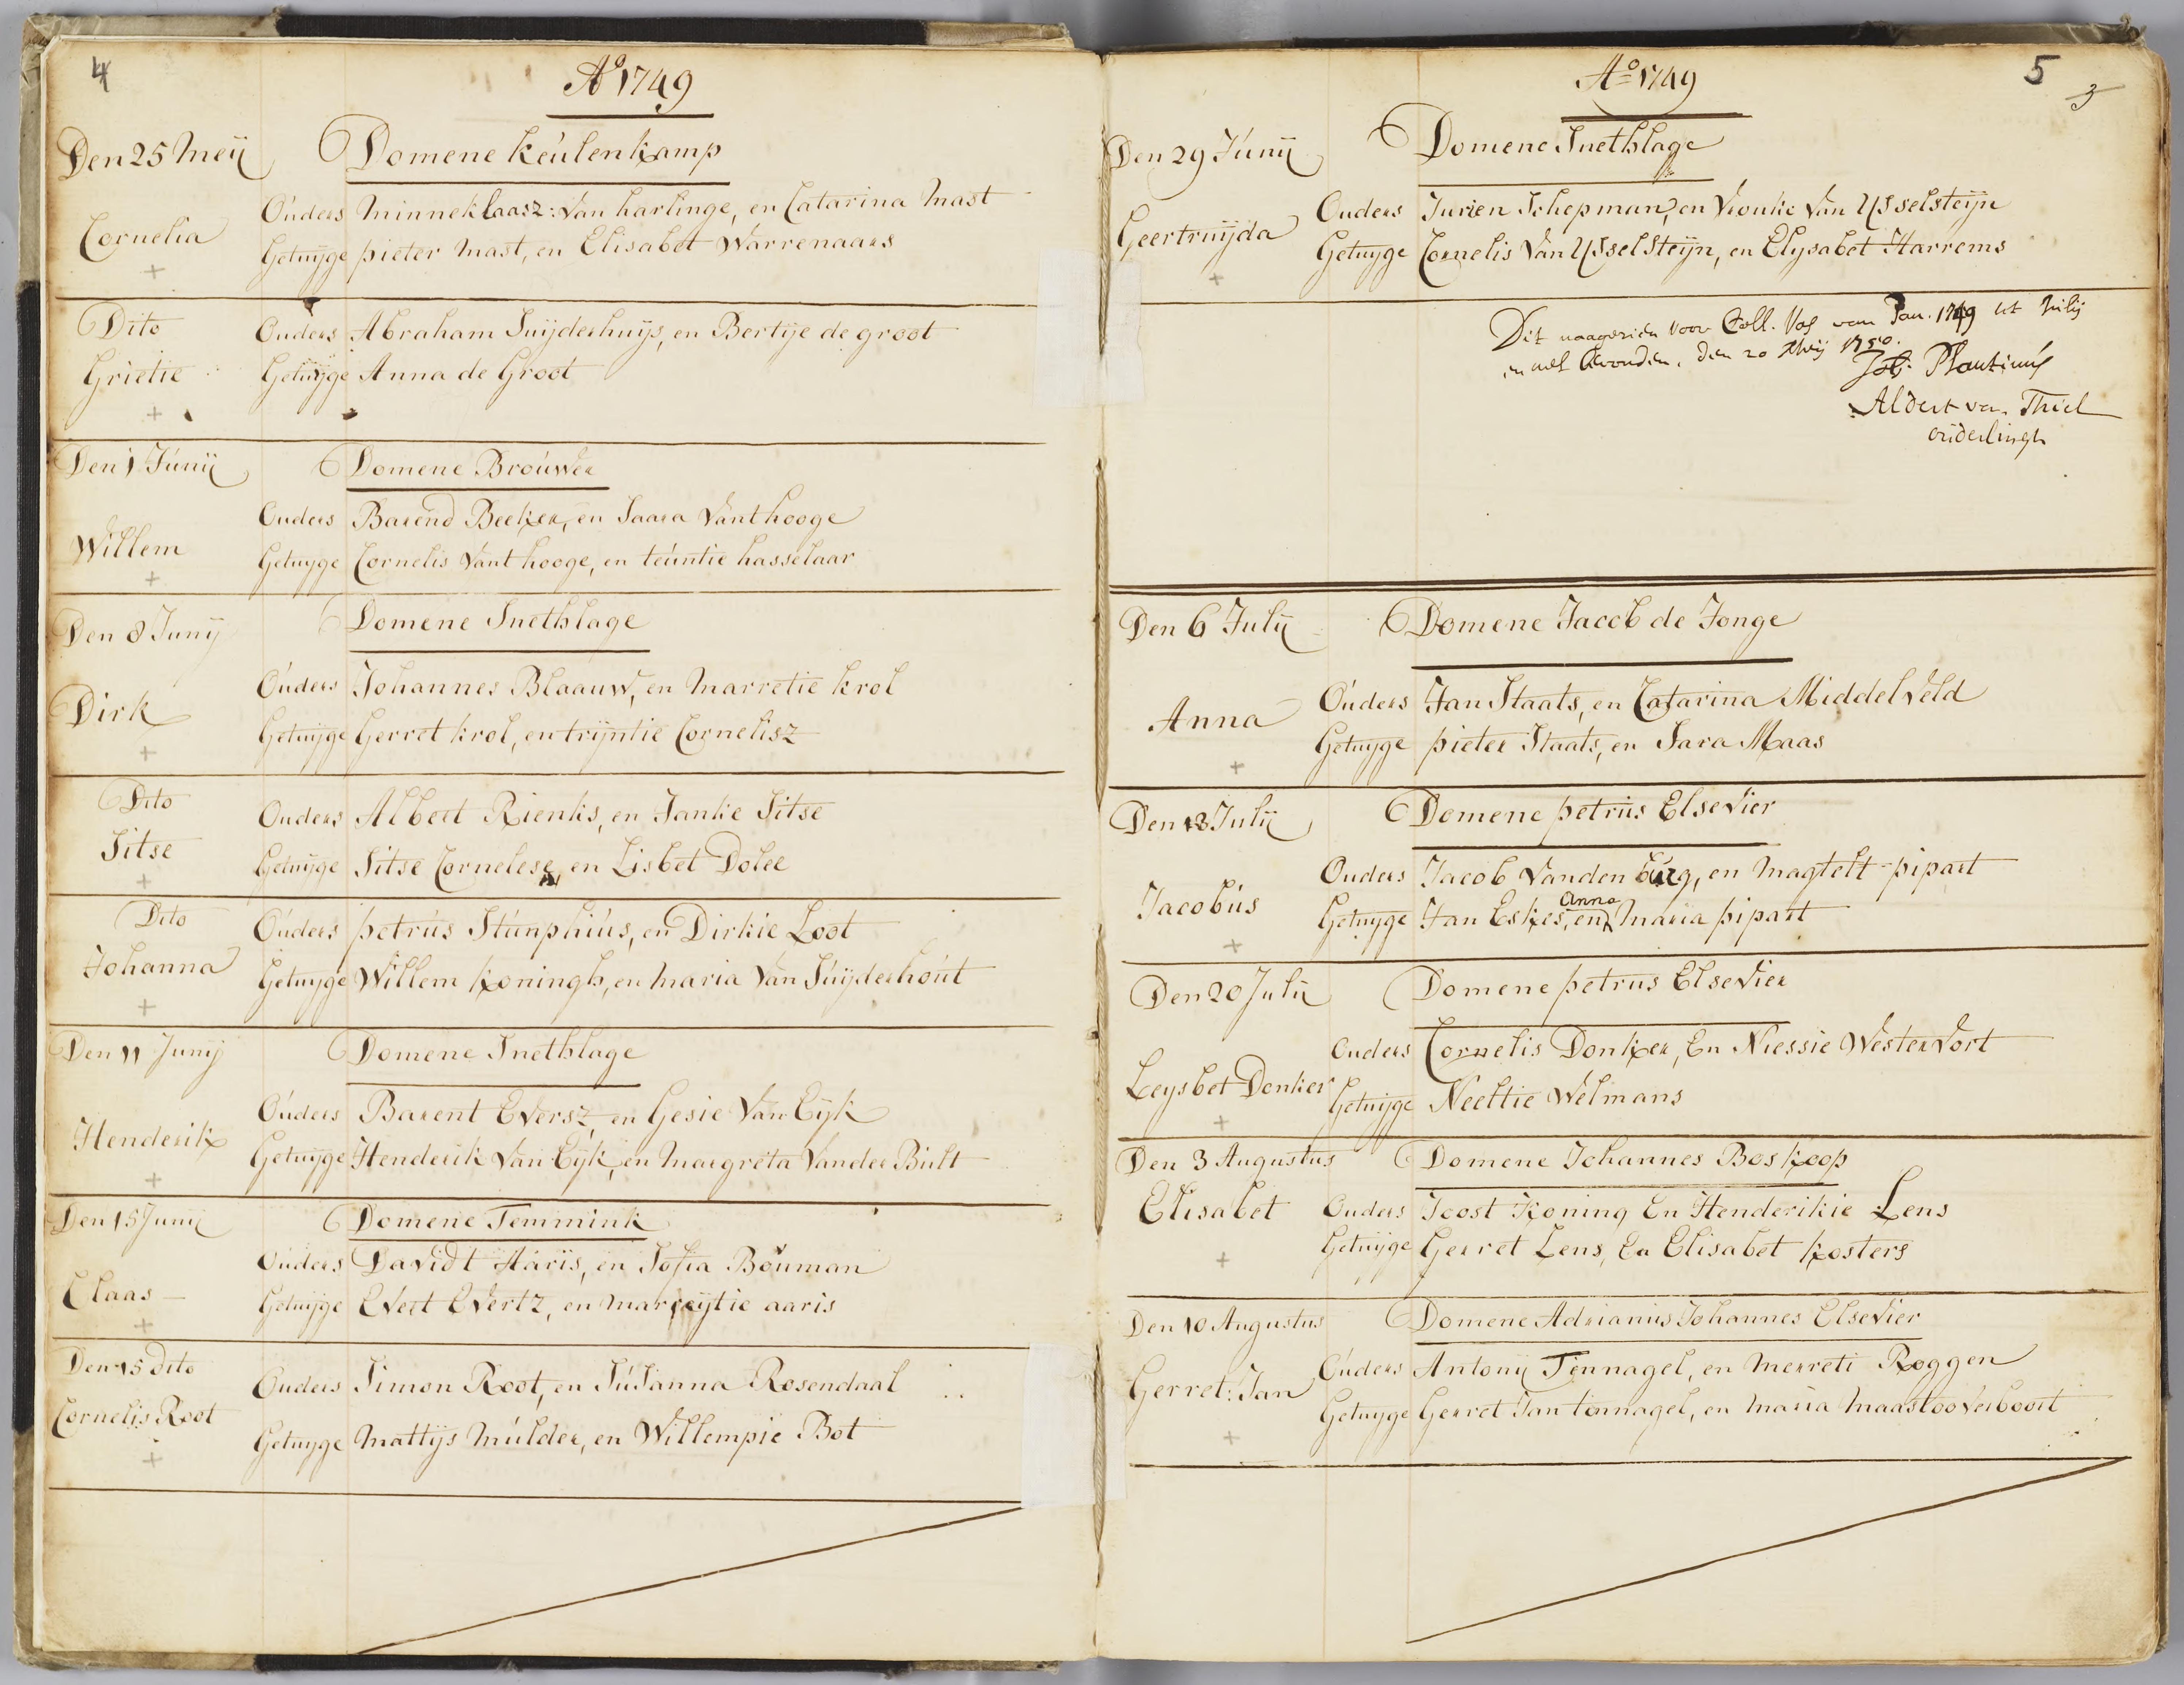 4
Ao 1749
Den 25 Meij Domene Keulenkamp
Ouders Minneklaasz: Van harlinge, en Catarina Mast
Cornelia
Getuijge pieter Mast, en Elisabet Warrenaars
+
Dito Ouders Abraham Suijderhuijs, en Bertije de groot
Grietie Getuijge Anna de Groot
+
Den 1 Junij Domene Brouwer
Ouders Barend Beeker, en Saara Vant hooge
Willem Getuyge Cornelis Vant hooge, en teuntie hasselaar
+
Den 8 Junij Domene Snethlage
Ouders Johannes Blaauw, en Marretie Krol
Dirk Getuijge Gerret Krol, en trijntie Cornelisz
+
Dito Ouders Albert Rienks, en Janke Sitse
Sitse Getuijge Sitse Cornelese, en Lisbet Dolee
+
Dito Ouders petrus Stunphius, en Dirkie Loot
Johanna Getuyge Willem Koningh, en Maria Van Suijderhout
+
Den 11 Junij Domene Snethlage
Ouders Barent Eversz, en Gesie Van Eijk
Henderik Getuyge Henderik Van Eijk, en Margreta Vander Bult
+
Den 15 Junij Domene Temmink
Ouders Davidt Haris, en Sofia Bouman
Claas Getuijge Evert Evertz, en Marreijtie aaris
+
Den 15 dito Ouders Simon Root, en Susanna Rosendaal
Cornelis Root Getuyge Mattijs Mulder, en Willempie Bot
+
Ao 1749
5
3
Den 29 Junij Domene Snethlage
Ouders Jurien Schepman, en Vrouke Van IJsselsteijn
Geertruijda Getuyge Cornelis Van IJsselsteijn, en Elysabet Harrems
+
Dit naagesien voor Coll. Vos van Jan. 1749 tot Julij
en wel bevonden, den 20 Meij 1750.
Joh. Plantinus
Aldert van Thiel
ouderlingh
Den 6 Julij Domene Jacob de Jonge
Ouders Jan Staats, en Catarina Middelveld
Anna Getuyge pieter Staats, en Sara Maas
+
Den 13 Julij Domene petrus Elsevier
Ouders Jacob Vanden burg, en Magtelt pipart
Anna
Jacobus Getuyge Jan Eskes, en Maria pipart
+
Den 20 Julij Domene petrus Elsevier
Ouders Cornelis Donker, En Niessie Westervort
Leysbet Donker Getuijge Neeltie Welmans
+
Den 3 Augustus Domene Johannes Boskoop
Elisabet Ouders Joost Koning En Henderikie Lens
Getuijge Gerret Lens, En Elisabet Kosters
+
Den 10 Augustus Domene Adrianus Johannes Elsevier
Ouders Antony Tennagel, en Merreti Roggen
Gerret: Jan Getuyge Gerret Jan tinnagel, en Maria Maasloo Verboort
+